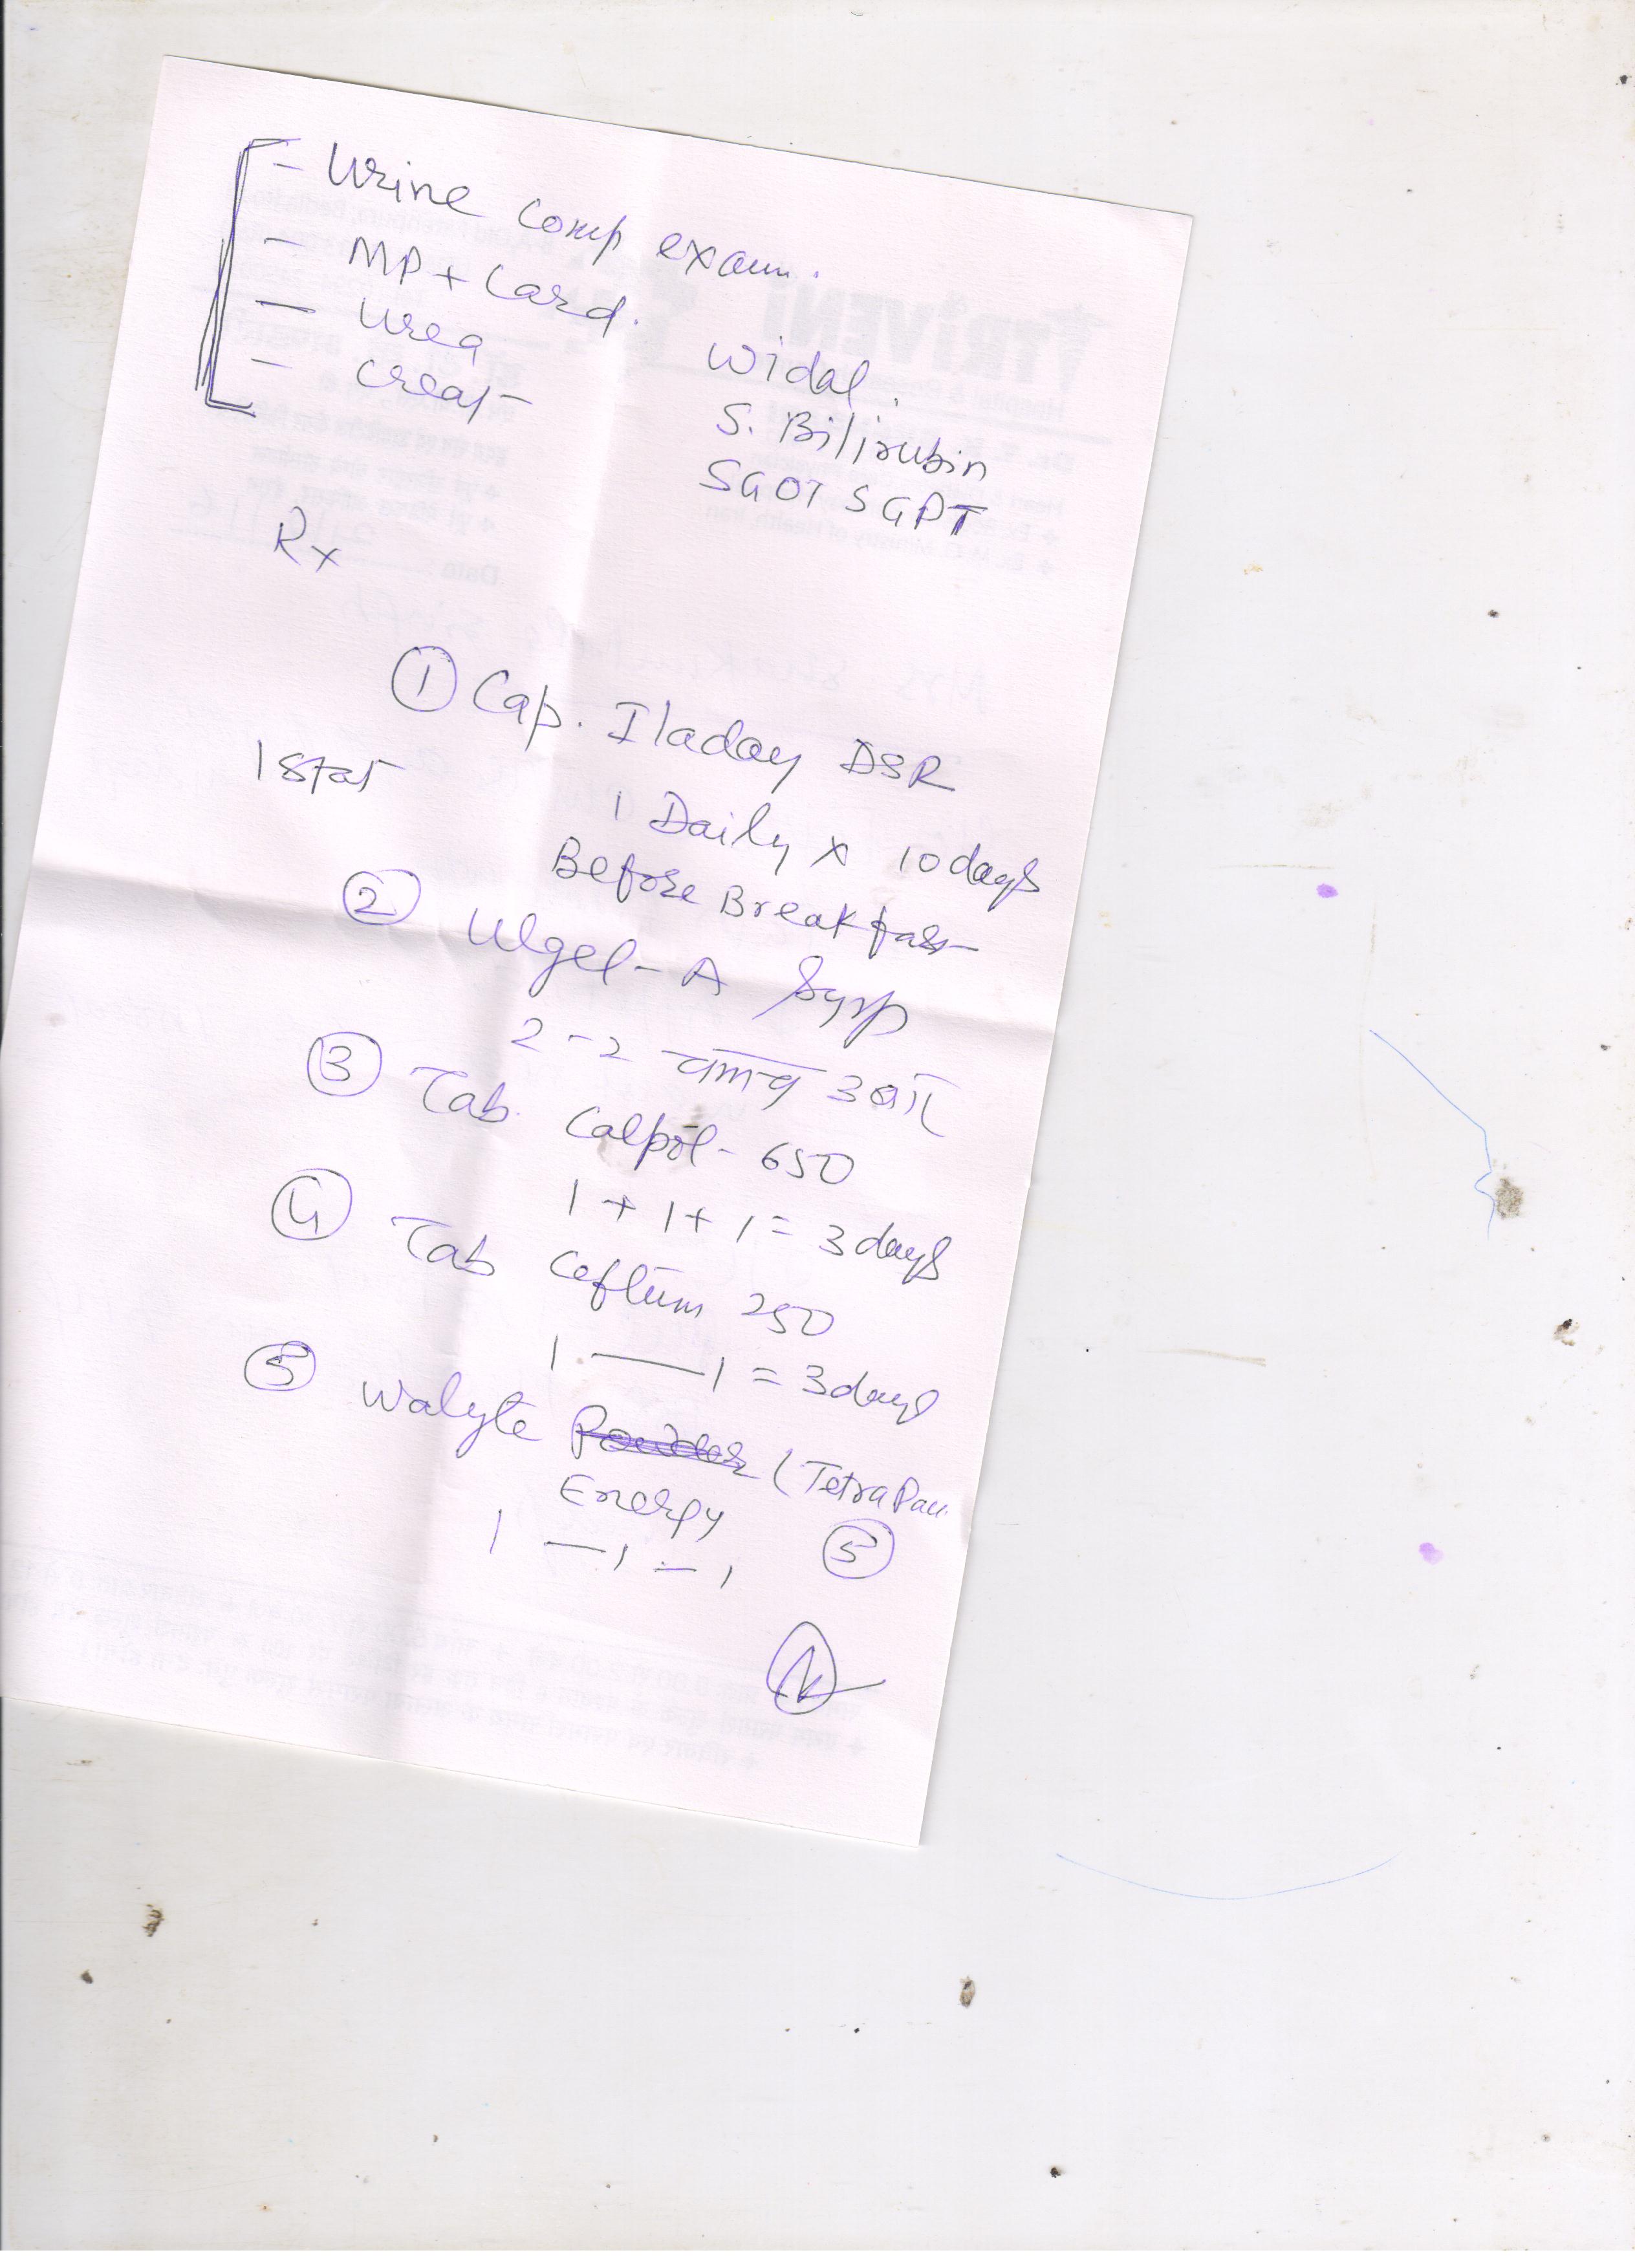 - Urine comp exam.
- MP + Card.
- Urea
- Creat
Widal.
S. Bilirubin
SGOT SGPT
Rx
① Cap. Iladay DSR
1 stat
1 Daily x 10 days
Before Breakfast
② Ulgel-A Syrp
2-2 चम्मच 3 बार
③ Tab. Calpol-650
1 + 1 + 1 = 3 days
④ Tab Ceftum 250
1 — 1 = 3 days
⑤ Walyte Powder (Tetra Pack
Energy
1 — 1 — 1 ⑤